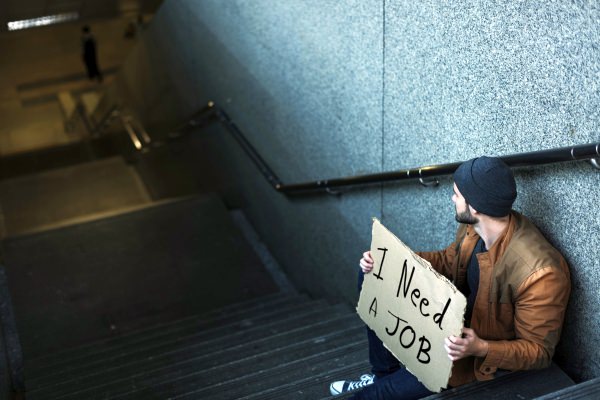 I Need
A JOB